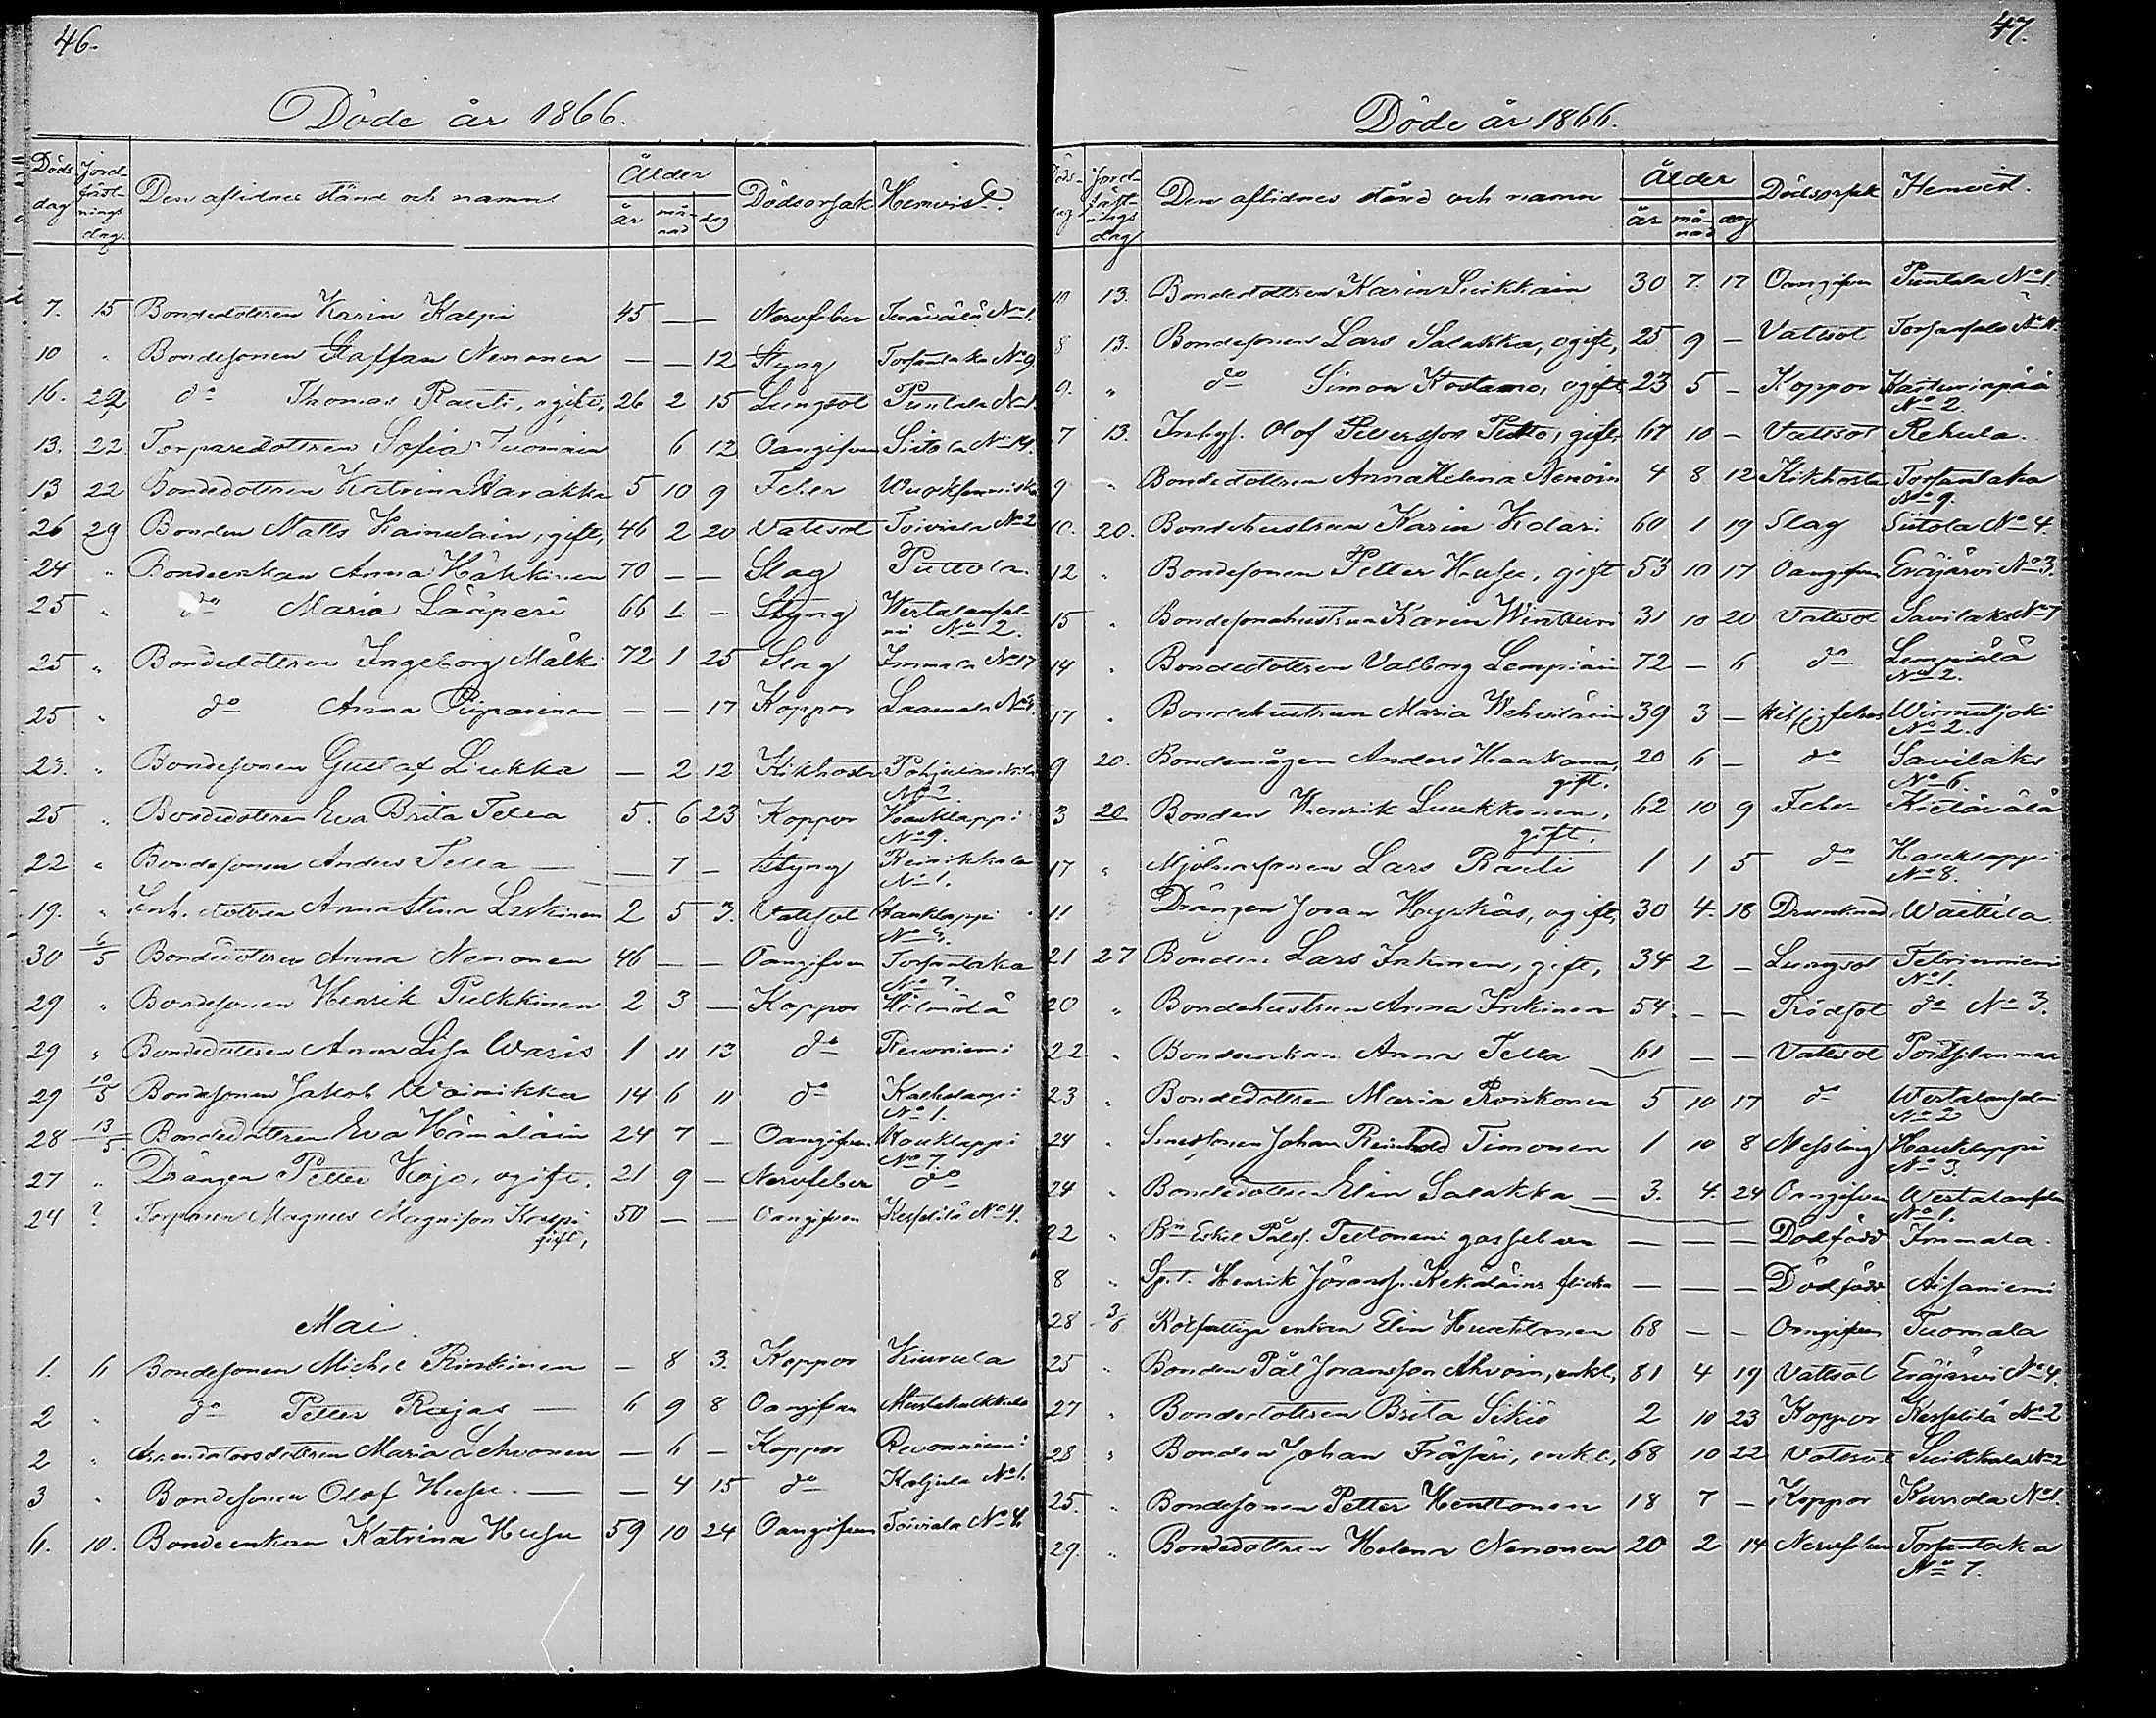 46.
Döde år 1866.
Döds dag Jordfästnings dag. Den aflidnes stånd och namn Ålder år månad dag Dödsorsak Hemvist.
7. 15 Bondedottren Karin Kalpi 45 — — Nervfeber Terävälä No 1.
10 " Bondesonen Staffan Nenonen — — 12 Styng Torsantaka No 9.
16. 22 do Thomas Rauti, ogift, 26 2 15 Lungsot Puntala No 1.
13. 22 Torparedottren Sofia Tuomain 6 12 Oangifven Siitola No 14.
13 22 Bondedottren Katrina Harakka 5 10 9 Feber
26 29 Bonden Matts Kainulain, gift, 46 2 20 Vatsot Toiviala No 2
24 " Bondeenkan Anna Häkkinen 70 — — Slag
25 " do Maria Lääperi 66 1 — Styng Wertalansalmi No 2.
25 " Bondedottren Ingeborg Mälk 72 1 25 Slag Immala No 17
25 " do Anna Piiparinen — — 17 Koppor
23. " Bondesonen Gustaf Liukka — 2 12 Kikhosta No 2.
25 " Bondedottren Eva Brita Tella 5. 6 23 Koppor Hauklappi No 9.
22 " Bondesonen Anders Tella — — 7 — Styng Reinikkala No 1.
19. " Inh. dottren Anna Stina Leskinen 2 5 3. Vattsot Hauklappi
30 6/5 Bondedottren Anna Nenonen 46 — — Oangifven Torsantaka No 7.
29 " Bondesonen Henrik Pulkkinen 2 3 — Koppor
29 " Bondedottren Anna Lisa Waris 1 11 13 do Revoniemi
29 10/5 Bondesonen Jakob Wainikka 14 6 11 do No 1.
28 13/5 Bondedottren Eva Hämäläin 24 7 — Oangifven Hauklappi No 7.
27 " Drängen Petter Kojo, ogift, 21 9 — Nervfeber do
24 ? Torparen Magnus Magnison Korpi gift, 50 — — Oangifven Kesselilä No 4.
Mai.
1. 6 Bondesonen Michel Rinkinen — 8 3. Koppor Kiurula
2 " do Petter Rajas — 6 9 8 Oangifven Mustakalkkala
2 " Arrendatorsdottren Maria Lehvonen — 6 — Koppor Revonniemi
3 " Bondesonen Olof Husu — — 4 15 do Kohjula No 1.
6. 10. Bondeenkan Katrina Husu 59 10 24 Oangifven Toiviala No 4.
47.
Döde år 1866.
Döds dag Jordfästnings dag Den aflidnes stånd och namn Ålder år månad dag Dödsorsak Hemvist.
10 13. Bondedottren Karin Suikkain 30 7. 17 Oangifven Puntala No 1.
8 13. Bondesonen Lars Salakka, ogift, 25 9 — Vattsot
9. " do Simon Kostamo, ogift 23 5 — Koppor Kaituinpää No 2.
7 13. Inhys. Olof Petersson Putto, gift, 67 10 — Vattsot Rekula.
9 " Bondedottren Anna Helena Nenoin 4 8 12 Kikhosta Torsantaka No 9.
10. 20. Bondehustrun Karin Kolari 60 1 19 Slag Siitola No 4.
12 " Bondesonen Petter Husu, gift 53 10 17 Oangifven Eräjärvi No 3.
15 " Bondesonahustrun Karin Wintturi 31 10 20 Vattsot Savilaks No 7
14 " Bondedottren Valborg Lempiäin 72 — 6 do Lempiälä No 2.
17 " Bondehustrun Maria Wehviläin 39 3 — Wirmutjoki No 2.
9 20. Bondemågen Anders Haakana, gift. 20 6 — do Savilaks No 6.
3 20 Bonden Henrik Luukkonen, gift. 62 10 9 Feber Kielävälä
17 " Mjölnarsonen Lars Rauti 1 1 5 do Hauklappi No 8.
11 Drängen Joran Hyrkäs, ogift, 30 4. 18 Drunknad Waittila
21 27 Bonden Lars Inkinen, gift, 34 2 — Lungsot Tetriniemi No 1.
20 " Bondehustrun Anna Inkinen 54. — — Trådsot do No 3.
22 " Bondeenkan Anna Tella 61 — — Vattsot
23 " Bondedottren Maria Roiskonen 5 10 17 do Wertalansalmi No 2
24 " Smedsonen Johan Reinhold Timonen 1 10 8 Messling Hauklappi No 3.
24 " Bondedottren Elin Salakka — 3. 4. 24 Oangifven Wertalansalmi No 1.
22 " Bn Eskel Pålss. Tiitonens gossebarn — — — Dödfödd Immala.
8 " Spt. Henrik Jöranss. Kekäläins flicka — — — Dödfödd Aisaniemi
28 3/6 Rotfattiga enkan Elin Huuhtanen 68 — — Oangifven Tuomala
25 " Bonden Pål Joransson Ahvoin, enkl, 81 4 19 Vattsot Eräjärvi No 4.
27 " Bondedottren Brita Sikiö 2 10 23 Koppor Kesselilä No 2
28 " Bonden Johan Träskäri, enkl, 68 10 22 Vattsot Suikkala No 2
25. " Bondesonen Petter Henttonen 18 7 — Koppor Kurrola No 1.
29. " Bondedottren Helena Nenonen 20 2 14 Nervfeber Torsantaka No 7.